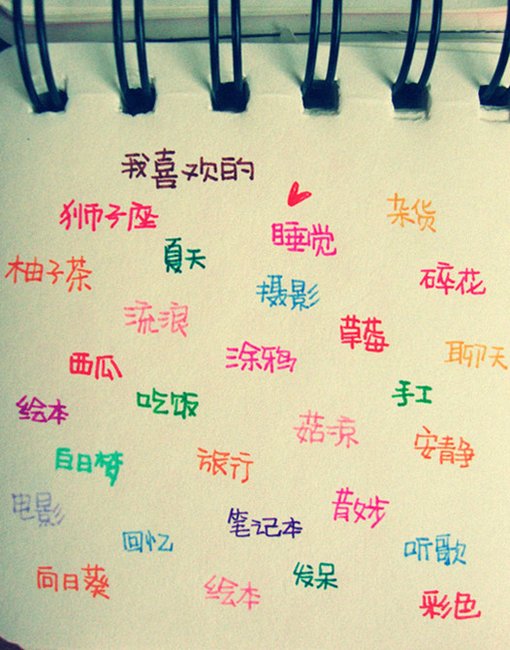 我喜欢的
狮子座
睡觉
杂货
柚子茶
夏天
摄影
碎花
流浪
草莓
西瓜
涂鸦
聊天
绘本
吃饭
手工
菇凉
安静
白日梦
旅行
电影
回忆
笔记本
散步
听歌
向日葵
绘本
发呆
彩色